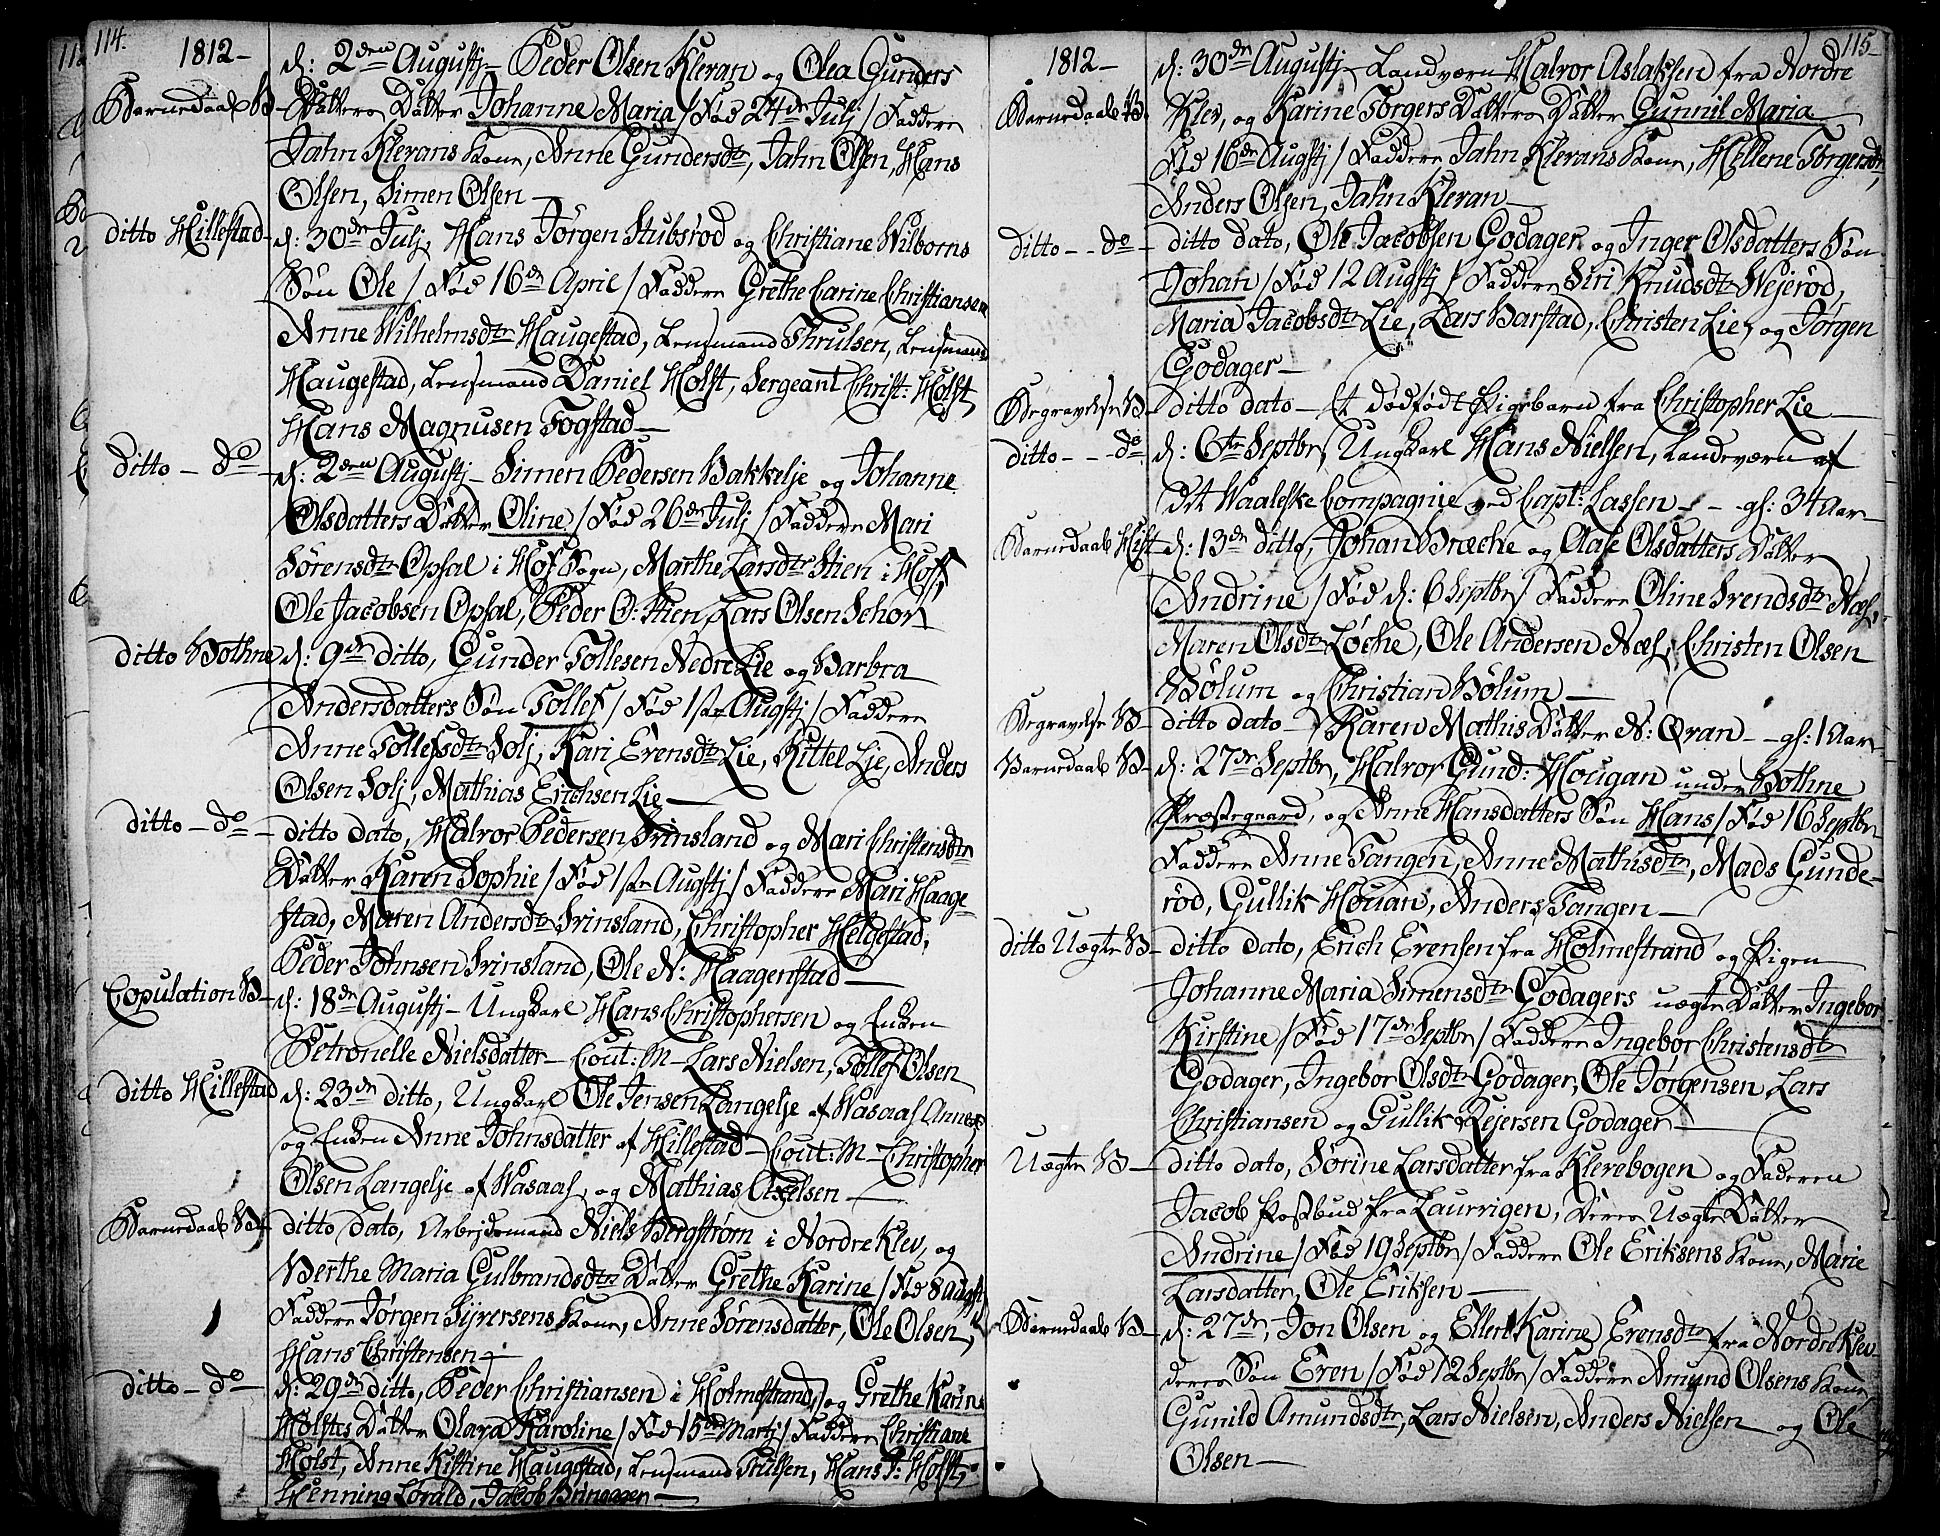 114.
1812-
d: 2den Augustj- Peder Olsen Kleran og Olea Gunders
Barnedaab B-
Datters Datter Johanne Maria / Fød 24de Julj / Faddere
Jahn Klerans Kone, Anne Gundersdtr, Jahn Olsen, Hans
Olsen, Simen Olsen -
ditto Hillestad-
d: 30de Julj, Hans Jørgen Stubsrød og Christiane Wilborns
Søn Ole / Fød 16de April / Faddere Grethe Carine Christiansen
Anne Wilhelmsdtr Haugestad, Lensmand Thrulsen, Lensmand
Haugestad, Lensmand Daniel Holst, Sergeant Christ: Holst,
Hans Magnusen Fogstad-
ditto - do -
d: 2den Augustj- Simen Pedersen Bakkelje og Johanne
Olsdatters Datter Oline / Fød 26de Julj / Faddere Mari
Sørensdtr Opsal i Hof Sogn, Marthe Larsdtr Stien i Hof,
Ole Jacobsen Opsal, Peder O: Stien, Lars Olsen Sehor
ditto Bothne
d: 9de ditto, Gunder Tollesen Nedre Lie og Barbra
Andersdatters Søn Tollef / Fød 1ste Augstj / Faddere
Anne Tollefsdtr Solj, Kari Evensdtr Lie, Kittel Lie, Anders
Olsen Solj, Mathias Erichsen Lie -
ditto - do -
ditto dato, Halvor Pedersen Srinsland og Mari Christensdtr
Datter Karen Sophie / Fød 1ste Augstj / Faddere Mari Haage-
stad, Maren Andersdtr Srinsland, Christopher Helgestad,
Peder Johnsen Srinsland, Ole N: Haagenstad -
Copulation B-
d: 18de Augustj- Ungkarl Hans Christophersen og Enken
Petronelle Nielsdatter - Cout: M- Lars Nielsen, Tollef Olsen
ditto Hillestad
d: 23de ditto, Ungkarl Ole Jensen Langelje af Wasaas Annex
og Enken Anne Johnsdatter af Hillestad - Cout: M- Christopher
Olsen Langelje af Wasaas, og Mathias Axelsen -
Barnedaab B-
ditto dato, Arbejdsmand Niels Bergstrøm i Nordre Klev, og
Berthe Maria Gulbrandsdtr Datter Grethe Karine / Fød 8 Augst
Faddere Jørgen Syversens Kone, Anne Sørensdatter, Ole Olsen,
Hans Christensen -
ditto - do -
d: 29de ditto, Peder Christiansen i Holmestrand, og Grethe Karine
Holstes Datter Olava Karoline / Fød 15de Martj / Faddere Christiane
Holst, Anne Kistine Haugestad, Lensmand Trulsen, Hans J: Holst,
Henning Lovald, Jacob Bringager -
115-
1812-
d: 30de Augustj- Landværn Halvor Aslaksen fra Nordre
Barnedaab B.
Klev, og Karine Torgers Datters Datter Gunnil Maria
Fød 16de Augstj / Faddere Jahn Klerans Kone, Hellene Torgersdtr,
Anders Olsen, Jahn Kleran -
ditto - - do -
ditto dato, Ole Jacobsen Godager og Inger Olsdatters Søn
Johan / Fød 12 Augstj / Faddere Siri Knudsdtr Wejerød,
Maria Jacobsdtr Lie, Lars Barstad, Christen Lie, og Jørgen
Godager -
Begravelse B-
ditto dato - Et dødfødt Pigebarn fra Christopher Lie -
ditto - - do
d: 6te Septbr, Ungkarl Hans Nielsen, Landeværn af
det Waaleske Compagnie ved Capt: Lassen - - gl: 34 Aar -
Barnedaab Hist
d: 13de ditto, Johan Bræcke og Aase Olsdatters Datter
Andrine / Fød d: 6 Septbr / Faddere Oline Svendsdtr Næs,
Maren Olsdtr Løcke, Ole Andersen Næs, Christen Olsen
Bølum og Christian Bølum -
Begravelse B-
ditto dato - Karen Mathis Datter N: Qvan - gl: 1 Aar -
Barnedaab B-
d: 27de Septbr, Halvor Gund: Hougan under Bothne
Præstegaard, og Anne Hansdatters Søn Hans / Fød 16 Septbr
Faddere Anne Tangen, Anne Mathisdtr, Mads Gunde-
rød, Gullik Houan, Anders Tangen -
ditto Uægte B-
ditto dato, Erich Evensen fra Holmestrand og Pigen
Johanne Maria Simensdtr Godagers uægte Datter Ingebor
Kirstine / Fød 17de Septbr / Faddere Ingebor Christensdtr
Godager, Ingebor Olsdtr Godager, Ole Jørgensen Lars
Christiansen og Gullik Rejersen Godager -
Uægte B-
ditto dato, Sørine Larsdatter fra Klevebogen og Faderen
Jacob Postbud fra Laurvigen, Deres Uægte Datter
Andrine / Fød 19 Septbr / Faddere Ole Eriksens Kone, Marie
Larsdatter, Ole Eriksen -
Barnedaab B-
d: 27de, Jon Olsen og Ellen Karine Evensdtr fra Nordre Klev
deres Søn Even / Fød 12 Septbr / Faddere Amund Olsens Kone
Gunild Amundsdtr, Lars Nielsen, Anders Nielsen og Ole
Olsen -